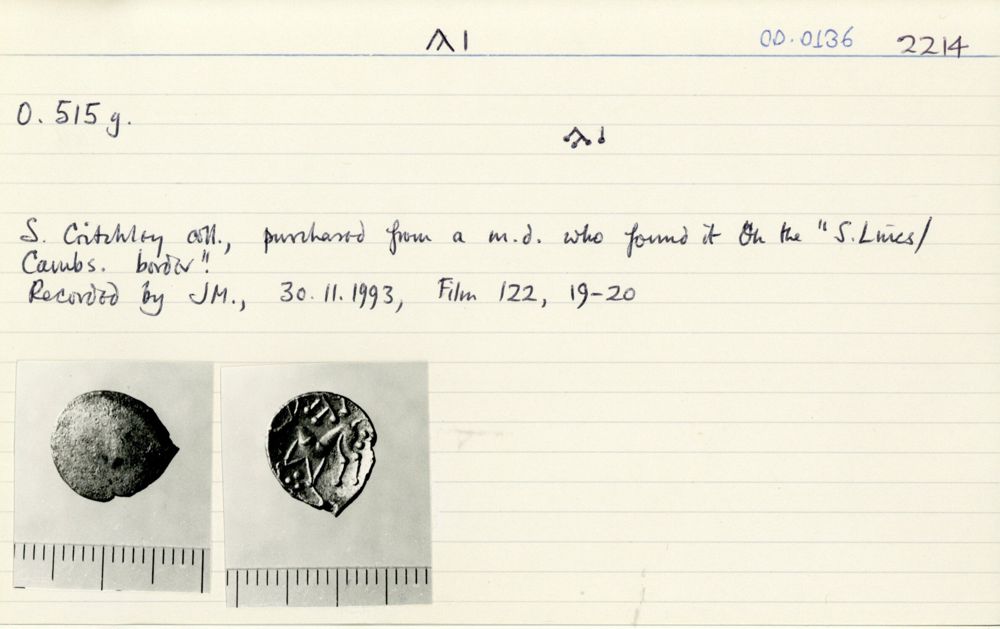 ΛΙ OD.0136 2214
0.515 g.
ΛΙ
S. Critchley coll., purchased from a m.d. who found it on the "S. Lincs/
Cambs. border".
Recorded by JM., 30.11.1993, Film 122, 19-20